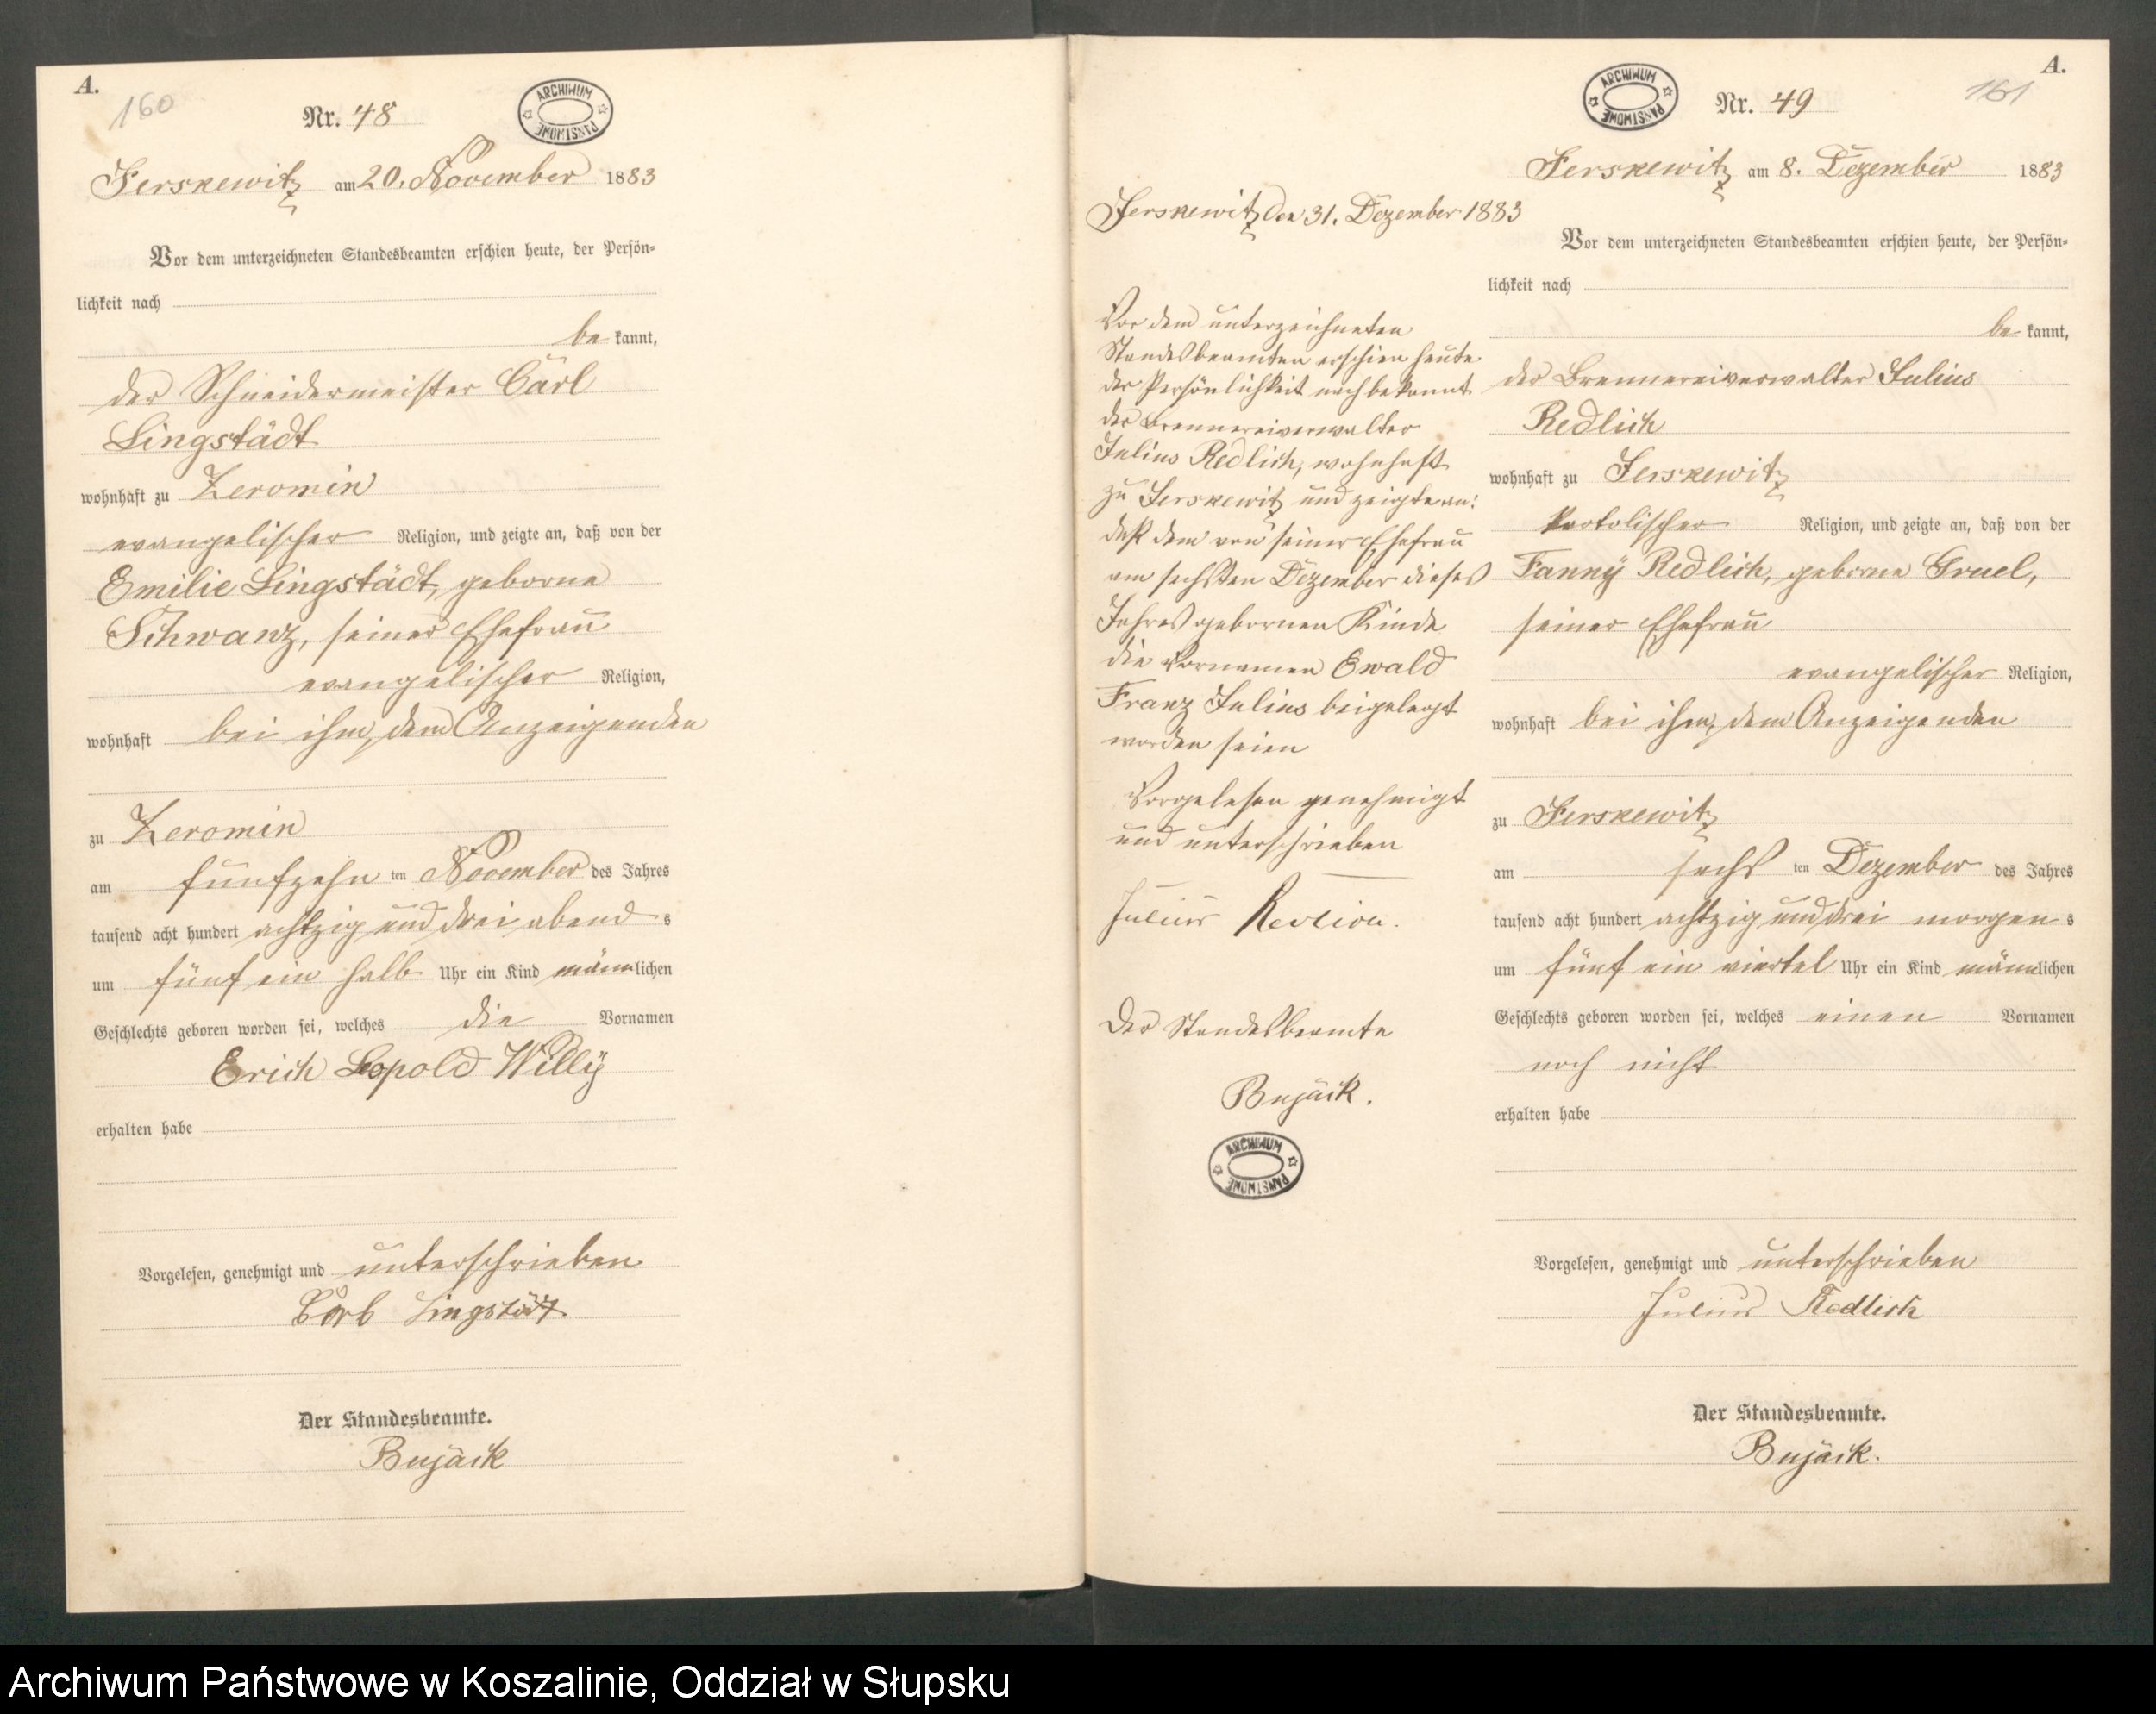 A.
160
Nr. 48
ARCHIWUM PAŃSTWOWE
Jerskewitz am 20. November 1883
Vor dem unterzeichneten Standesbeamten erschien heute, der Persön-
lichkeit nach
be kannt,
der Schneidermeister Carl
Lingstädt
wohnhaft zu Zeromin
evangelischer Religion, und zeigte an, daß von der
Emilie Lingstädt, geborne
Schwanz, seiner Ehefrau
evangelischer Religion,
wohnhaft bei ihm, dem Anzeigenden
zu Zeromin
am fünfzehn ten November des Jahres
tausend acht hundert achtzig und drei abend s
um fünf ein halb Uhr ein Kind männlichen
Geschlechts geboren worden sei, welches die Vornamen
Erich Leopold Willy
erhalten habe
Vorgelesen, genehmigt und unterschrieben
Carl Lingstädt
Der Standesbeamte.
Bujack
A.
161
ARCHIWUM PAŃSTWOWE
Nr. 49
Jerskewitz am 8. Dezember 1883
Vor dem unterzeichneten Standesbeamten erschien heute, der Persön-
lichkeit nach
be kannt,
der Brennereiverwalter Julius
Redlich
wohnhaft zu Jerskewitz
katolischer Religion, und zeigte an, daß von der
Fanny Redlich, geborne Gruel,
seiner Ehefrau
evangelischer Religion,
wohnhaft bei ihm, dem Anzeigenden
zu Jerskewitz
am sechs ten Dezember des Jahres
tausend acht hundert achtzig und drei morgen s
um fünf ein viertel Uhr ein Kind männlichen
Geschlechts geboren worden sei, welches einen Vornamen
noch nicht
erhalten habe
Vorgelesen, genehmigt und unterschrieben
Julius Redlich
Der Standesbeamte.
Bujack.
Jerskewitz den 31. Dezember 1883
Vor dem unterzeichneten
Standesbeamten erschien heute
der Persönlichkeit nach bekannt
der Brennereiverwalter
Julius Redlich, wohnhaft
zu Jerskewitz und zeigte an:
daß dem von seiner Ehefrau
am sechsten Dezember dieses
Jahres gebornen Kinde
die Vornamen Ewald
Franz Julius beigelegt
worden seien
Vorgelesen genehmigt
und unterschrieben
Julius Redlich.
Der Standesbeamte
Bujack.
ARCHIWUM PAŃSTWOWE
Archiwum Państwowe w Koszalinie, Oddział w Słupsku